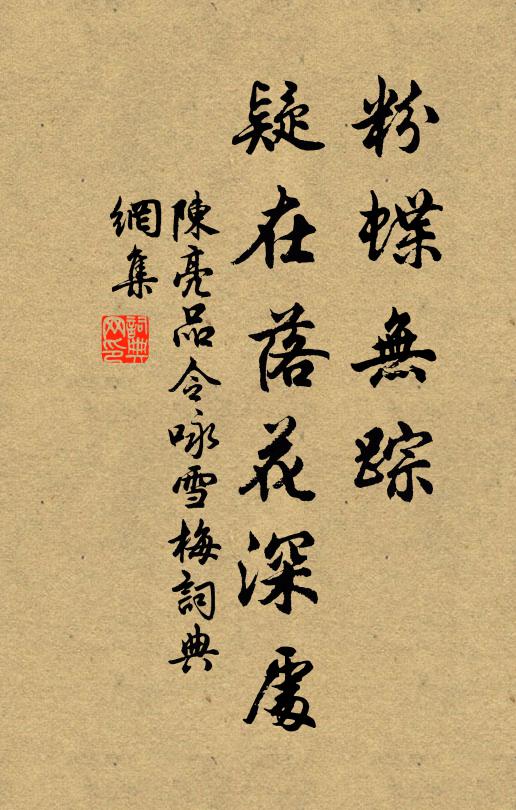 粉蝶無踪
疑在落花深處
陳亮品令咏雪梅詞典
網集
詞典網印